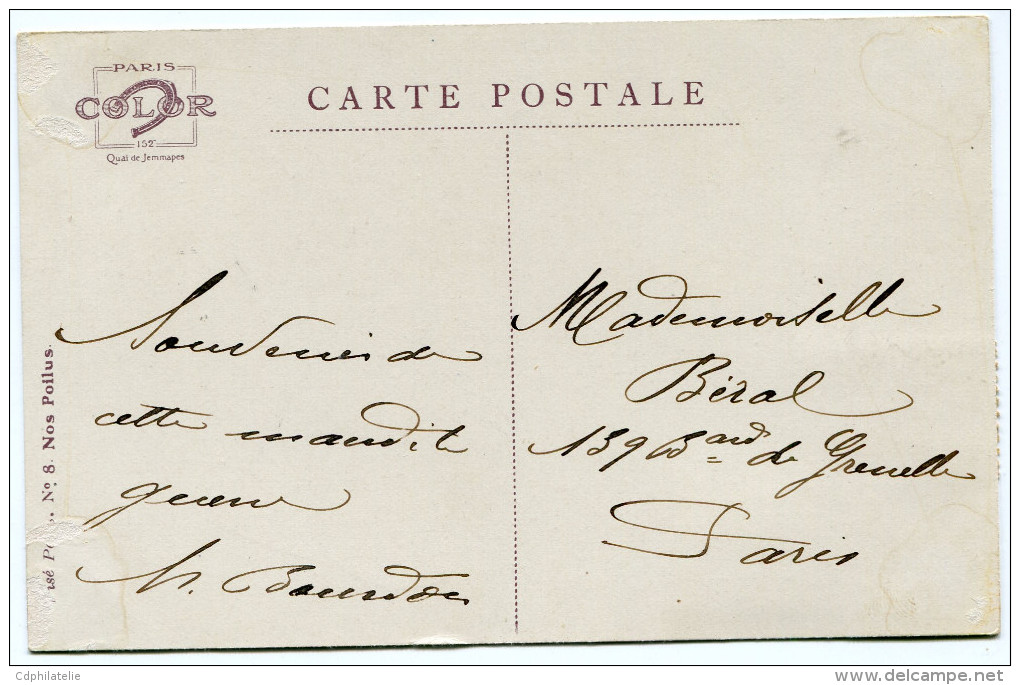 PARIS
COLOR
152
Quai de Jemmapes
CARTE POSTALE
Souvenir de
cette maudite
guerre
Bourdon
Mademoiselle
Béral
139 Bard de Grenelle
Paris
Nº 8. Nos Poilus.
Cdphilatelie
delcampe.net